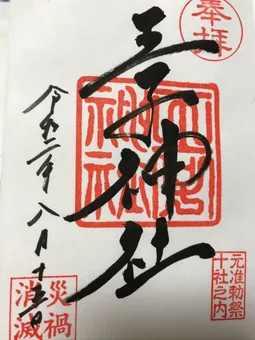 奉拝
王子神社
元准勅祭
十社之内
令和二年八月十五日
災禍
消滅